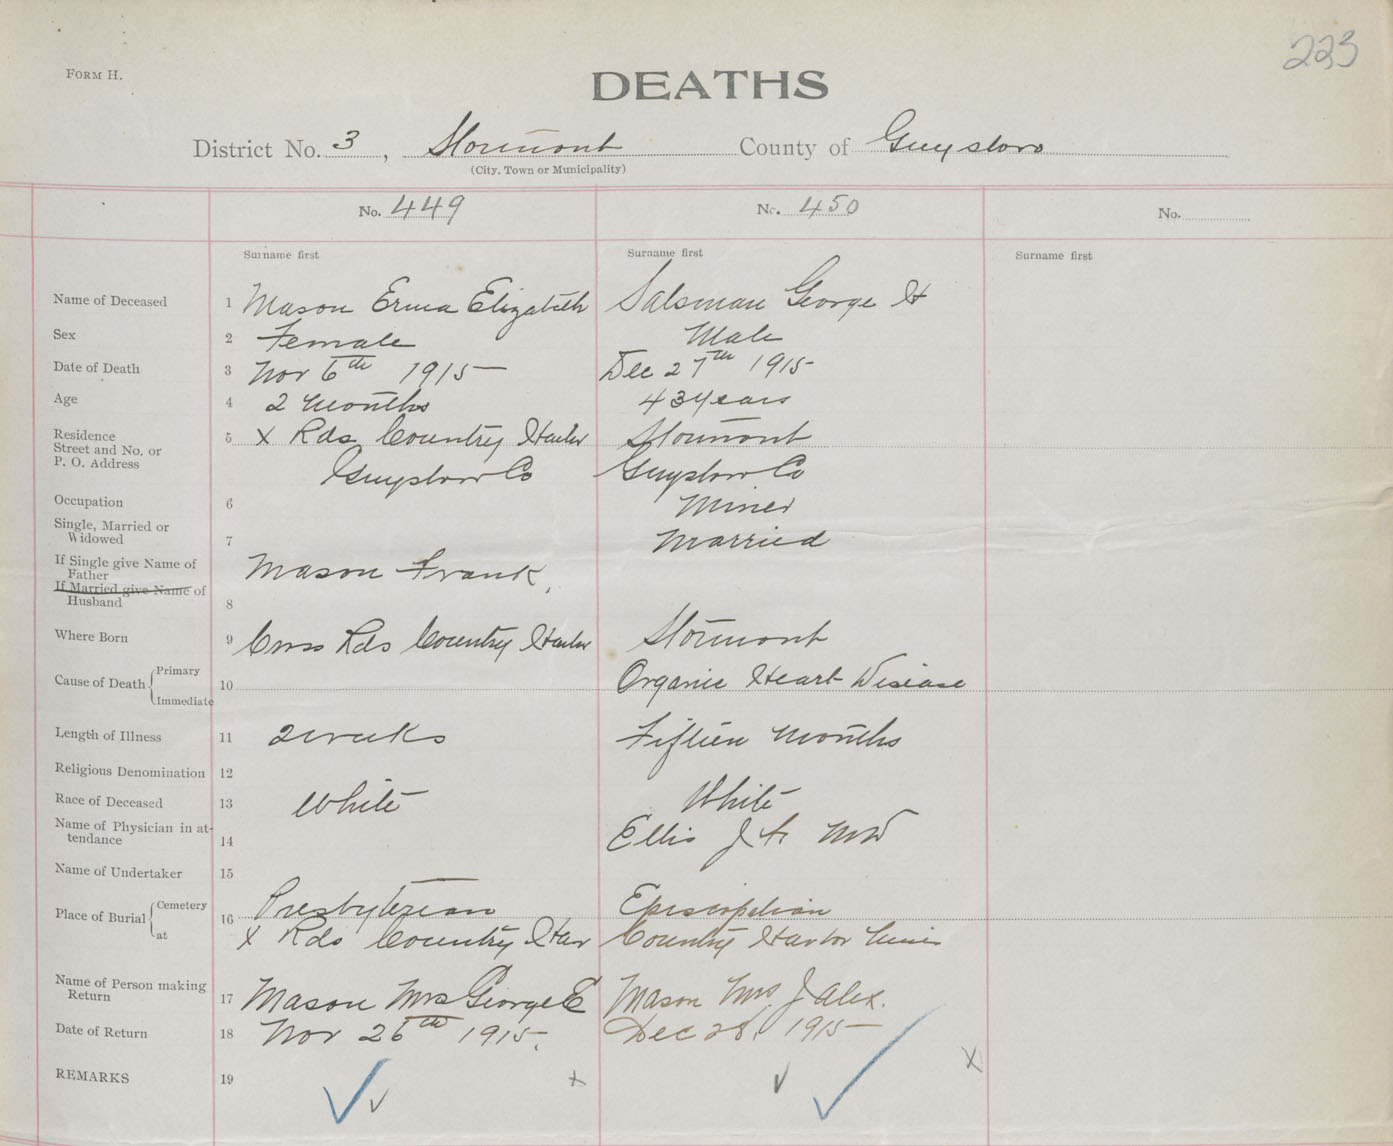 223
FORM H.
DEATHS
District No. 3, Stormont County of Guysboro
(City, Town or Municipality)
No. 449 No. 450 No.
Surname first Surname first Surname first
Name of Deceased 1 Mason Erma Elizabeth Salsman George H
Sex 2 Female Male
Date of Death 3 Nov 6th 1915 Dec 27th 1915
Age 4 2 months 43 years
Residence 5 X Rds Country Harbor Stormont
Street and No. or
P. O. Address Guysboro Co Guysboro Co
Occupation 6 Miner
Single, Married or
Widowed 7 Married
If Single give Name of
Father Mason Frank,
If Married give Name of
Husband 8
Where Born 9 Cross Rds Country Harbor Stormont
Cause of Death Primary
Immediate 10 Organic Heart Disease
Length of Illness 11 2 weeks Fifteen months
Religious Denomination 12
Race of Deceased 13 White White
Name of Physician in at-
tendance 14 Ellis J A MD
Name of Undertaker 15
Place of Burial Cemetery 16 Presbyterian Episcopalian
at X Rds Country Har Country Harbor
Name of Person making
Return 17 Mason Mrs George E Mason Mrs J Alex.
Date of Return 18 Nov 26th 1915. Dec 28, 1915
REMARKS 19